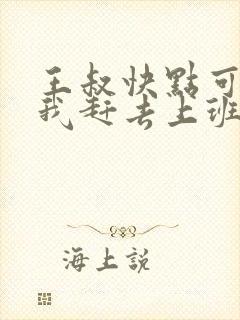 王叔快點可
我赶去上班
海上説